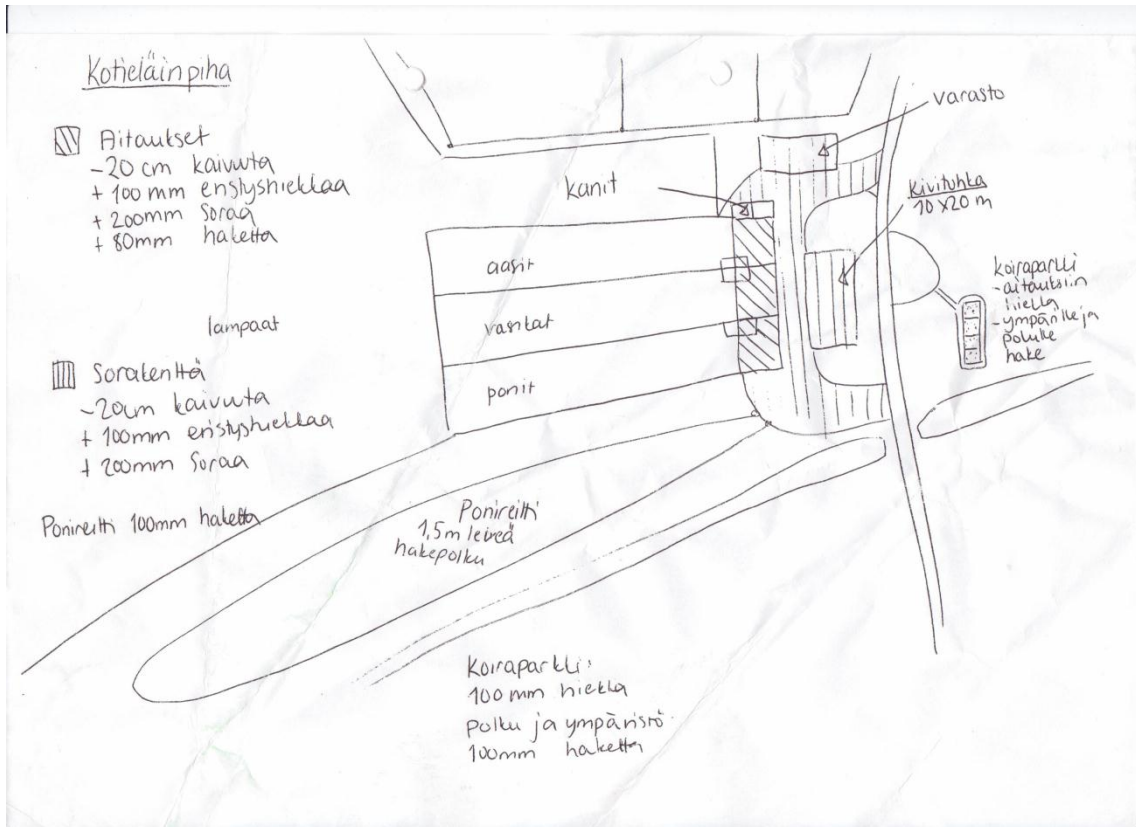 Kotieläinpiha
Aitaukset
- 20 cm kaivuuta
+ 100 mm eristyshiekkaa
+ 200mm Soraa
+ 80mm haketta
lampaat
Sorakenttä
- 20cm kaivuuta
+ 100mm eristyshiekkaa
+ 200mm Soraa
Ponireitti 100mm haketta
varasto
kanit
Kivituhka
10 x 20 m
aasit
vasikat
ponit
koiraparkki
- aitauksiin
hiekka
- ympärille ja
polulle
hake
Ponireitti
1,5m leveä
hakepolku
Koiraparkki:
100 mm hiekka
polku ja ympäristö
100mm haketta